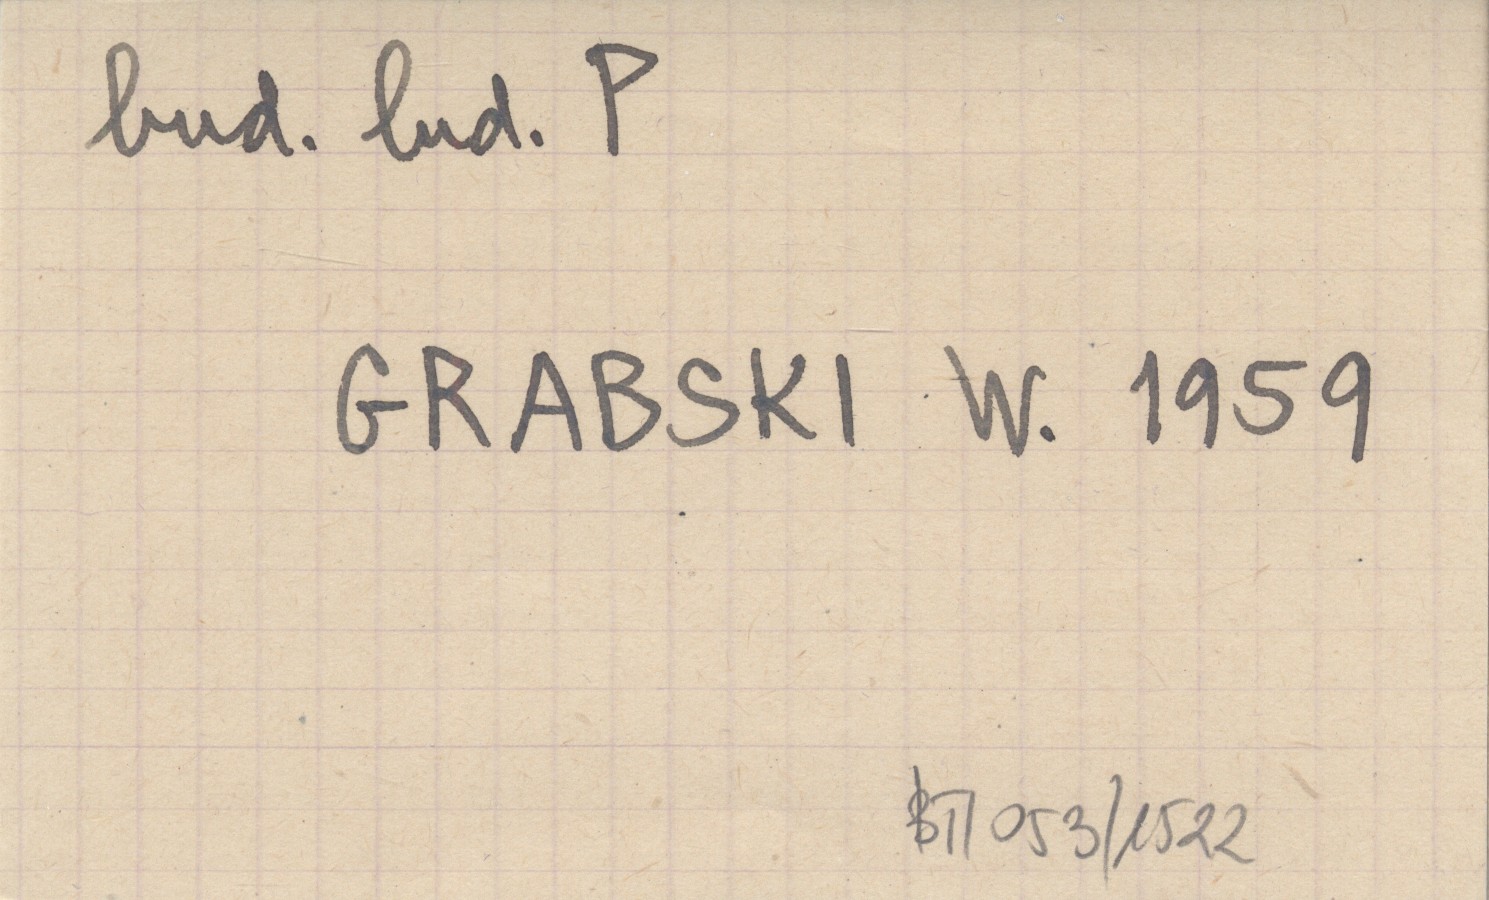 bud. lud. P
GRABSKI W. 1959
053/1522